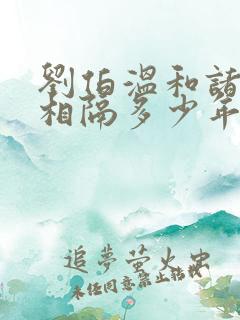 劉伯溫和諸
相隔多少年
追夢螢火虫
未任同意禁止轉載